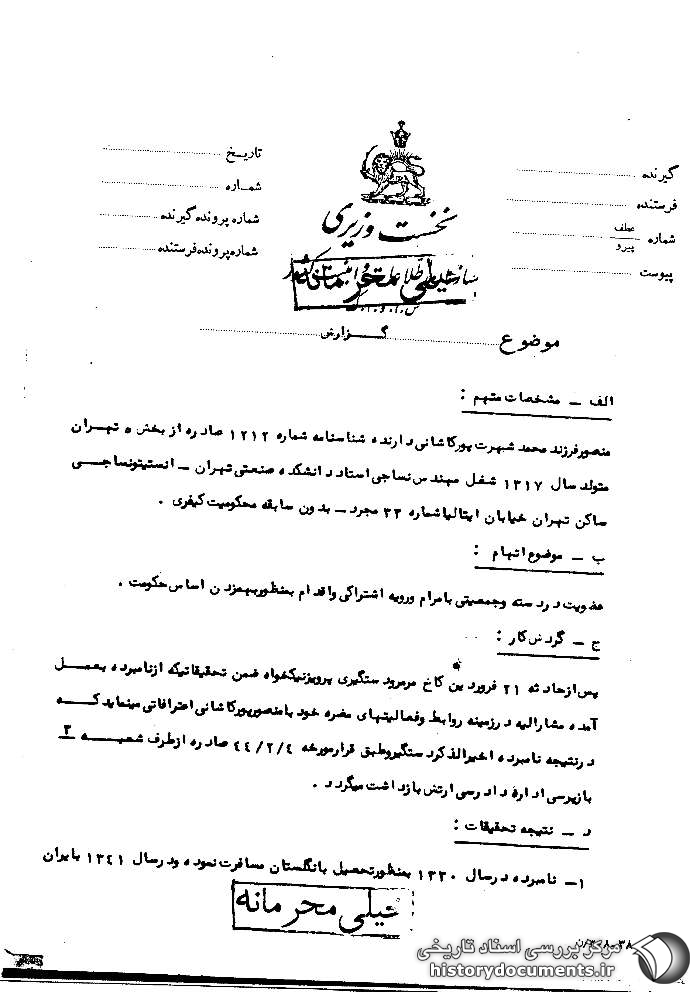 گیرنده
فرستنده
شماره عطف پیرو
پیوست
تاریخ
شماره
شماره پرونده گیرنده
شماره پرونده فرستنده
نخست وزیری
سازمان اطلاعات و امنیت کشور
خیلی محرمانه
س.ا.و.ا.ک
موضوع گزارش
الف - مشخصات متهم :
منصور فرزند محمد شهرت پورکاشانی دارنده شناسنامه شماره ۱۲۱۲ صادره از بخش ۵ تهران
متولد سال ۱۳۱۷ شغل مهندس نساجی استاد دانشکده صنعتی تهران - انستیتو نساجی
ساکن تهران خیابان ایتالیا شماره ۳۳ مجرد - بدون سابقه محکومیت کیفری .
ب - موضوع اتهام :
عضویت در دسته و جمعیتی با مرام و رویه اشتراکی و اقدام بمنظور بهمزدن اساس حکومت .
ج - گردش کار :
پس از حادثه ۲۱ فروردین کاخ مرمر و دستگیری پرویز نیکخواه ضمن تحقیقاتیکه از نامبرده بعمل
آمده مشارالیه در زمینه روابط و فعالیتهای مضره خود با منصور پورکاشانی اعترافاتی مینماید که
در نتیجه نامبرده اخیرالذکر دستگیر و طبق قرار مورخه ۴۴/۲/۴ صادره از طرف شعبه ۳
بازپرسی اداره دادرسی ارتش بازداشت میگردد .
د - نتیجه تحقیقات :
۱- نامبرده در سال ۱۳۳۰ بمنظور تحصیل بانگلستان مسافرت نموده و در سال ۱۳۴۱ بایران
خیلی محرمانه
مرکز بررسی اسناد تاریخی
historydocuments.ir